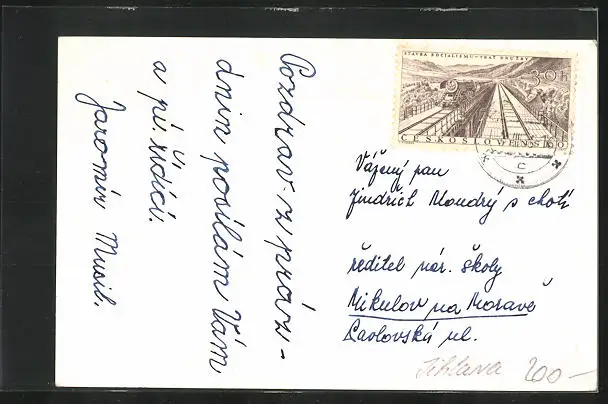 Pozdrav z práz-
dnin posílám Vám
a pí. řídící.
Jaromír Musil.
STAVBA SOCIALISMU - TRAŤ DRUŽBY
30 h
ČESKOSLOVENSKO
Vážený pan
Jindřich Moudrý s chotí
ředitel nár. školy
Mikulov na Moravě
Pavlovská ul.
Jihlava 200-